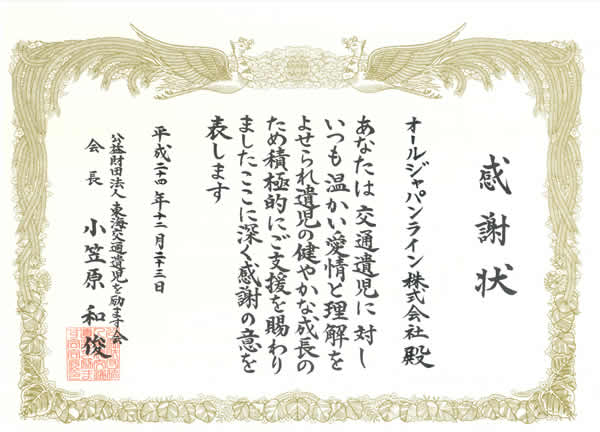 感謝状
オールジャパンライン株式会社 殿
あなたは交通遺児に対し
いつも温かい愛情と理解を
よせられ遺児の健やかな成長の
ため積極的にご支援を賜わり
ましたここに深く感謝の意を
表します
平成二十四年十二月二十三日
公益財団法人 東海交通遺児を励ます会
会長 小笠原 和俊